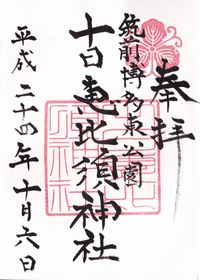 奉拝
筑前博多東公園
十日恵比須神社
平成二十四年十月六日